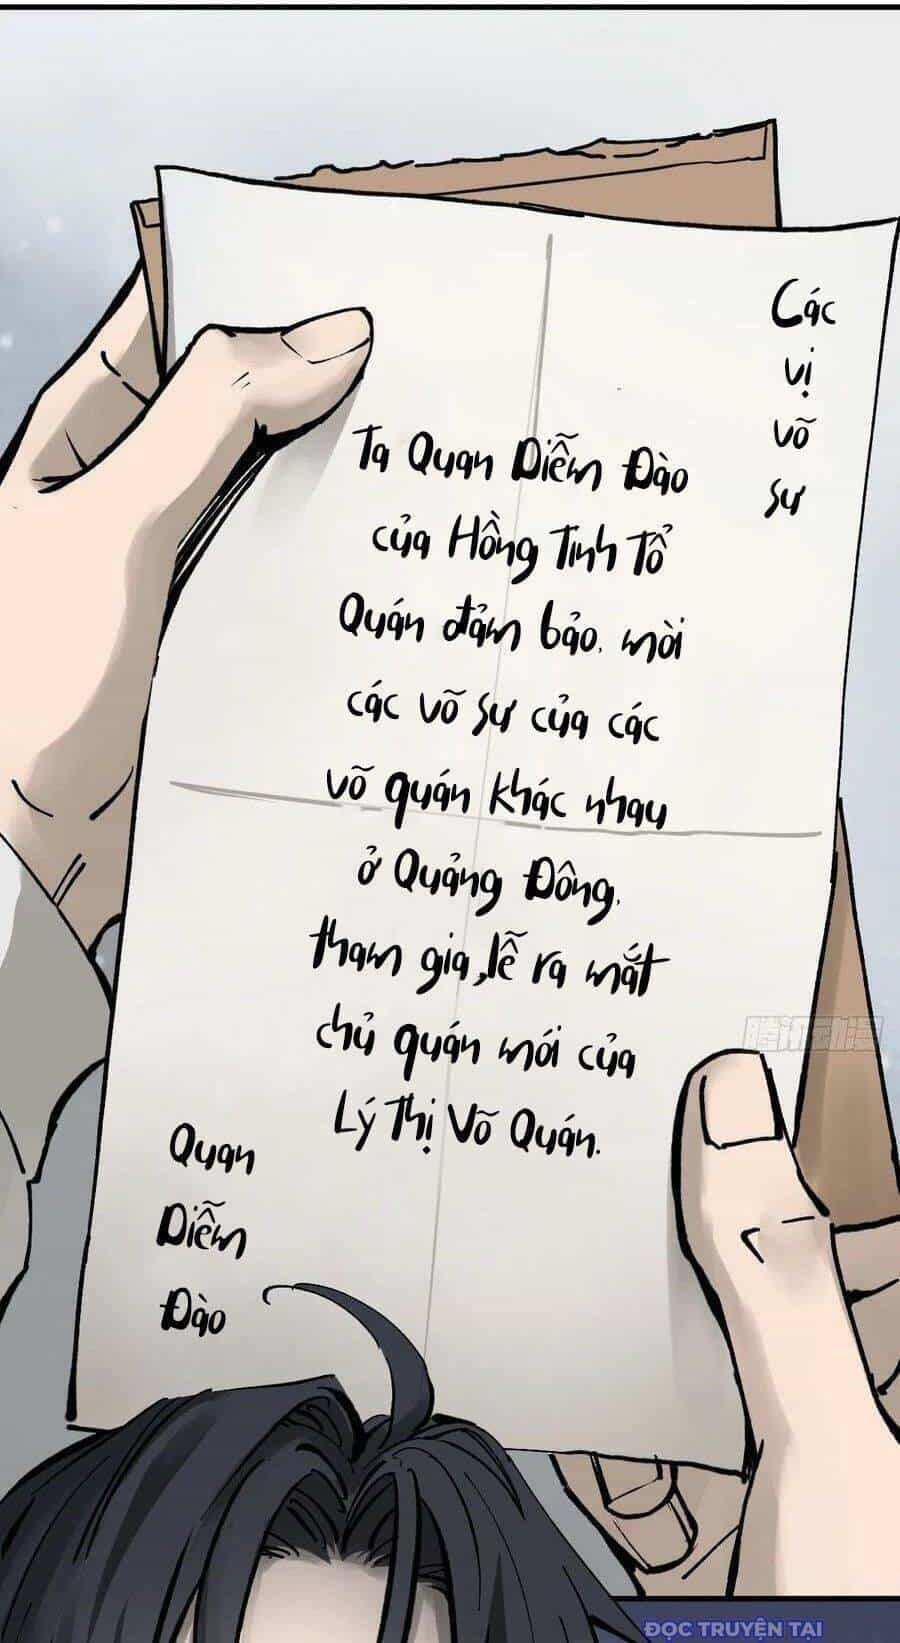 Các
vị
võ
sư
Tạ Quan Diễm Đào
của Hồng Tinh Tổ
Quán đảm bảo, mời
các võ sư của các
võ quán khác nhau
ở Quảng Đông,
tham gia, lễ ra mắt
chủ quán mới của
Lý Thị Võ Quán.
Quan
Diễm
Đào
腾讯动漫
ĐỌC TRUYỆN TẠI